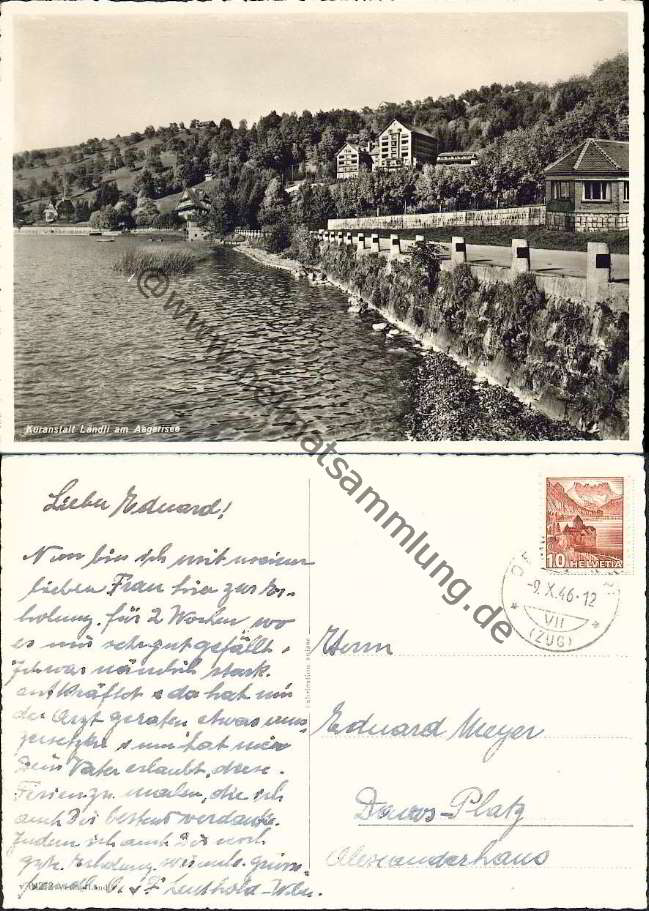 Kuranstalt Ländli am Aegerisee
@www.heimatsammlung.de
Lieber Eduard!
Nun bin ich mit meiner
lieben Frau hier zur Er-
holung für 2 Wochen wo
es mir sehr gut gefällt.
Ich war nämlich stark
entkräftet & da hat mir
der Arzt geraten etwas
& nun hat mir
Dein Vater erlaubt, diese
Ferien zu machen, die ich
auch Dir bestens verdanke.
Indem ich auch Dir noch
gute Erholung wünsche
Leuthold-
10 HELVETIA
-9.X.46-12
VII
(ZUG)
Herrn
Eduard Meyer
Davos-Platz
Alexanderhaus